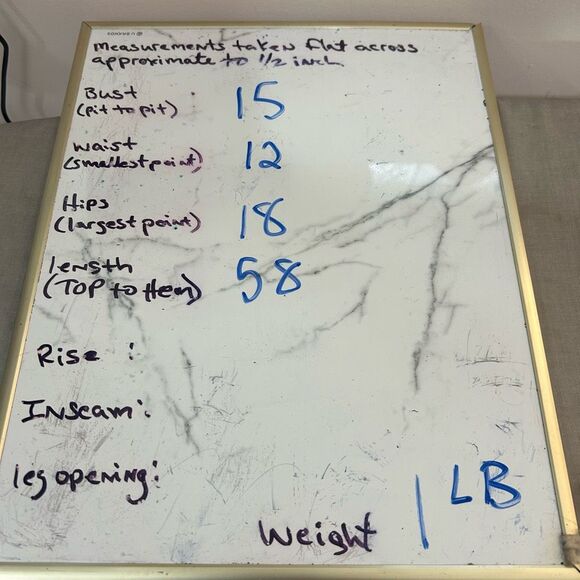 Measurements taken flat across
approximate to 1/2 inch
Bust : 15
(pit to pit)
waist 12
(smallest point)
Hips
(largest point) 18
length
(TOP to Hem) 58
Rise :
Inseam:
leg opening:
Weight 1 LB